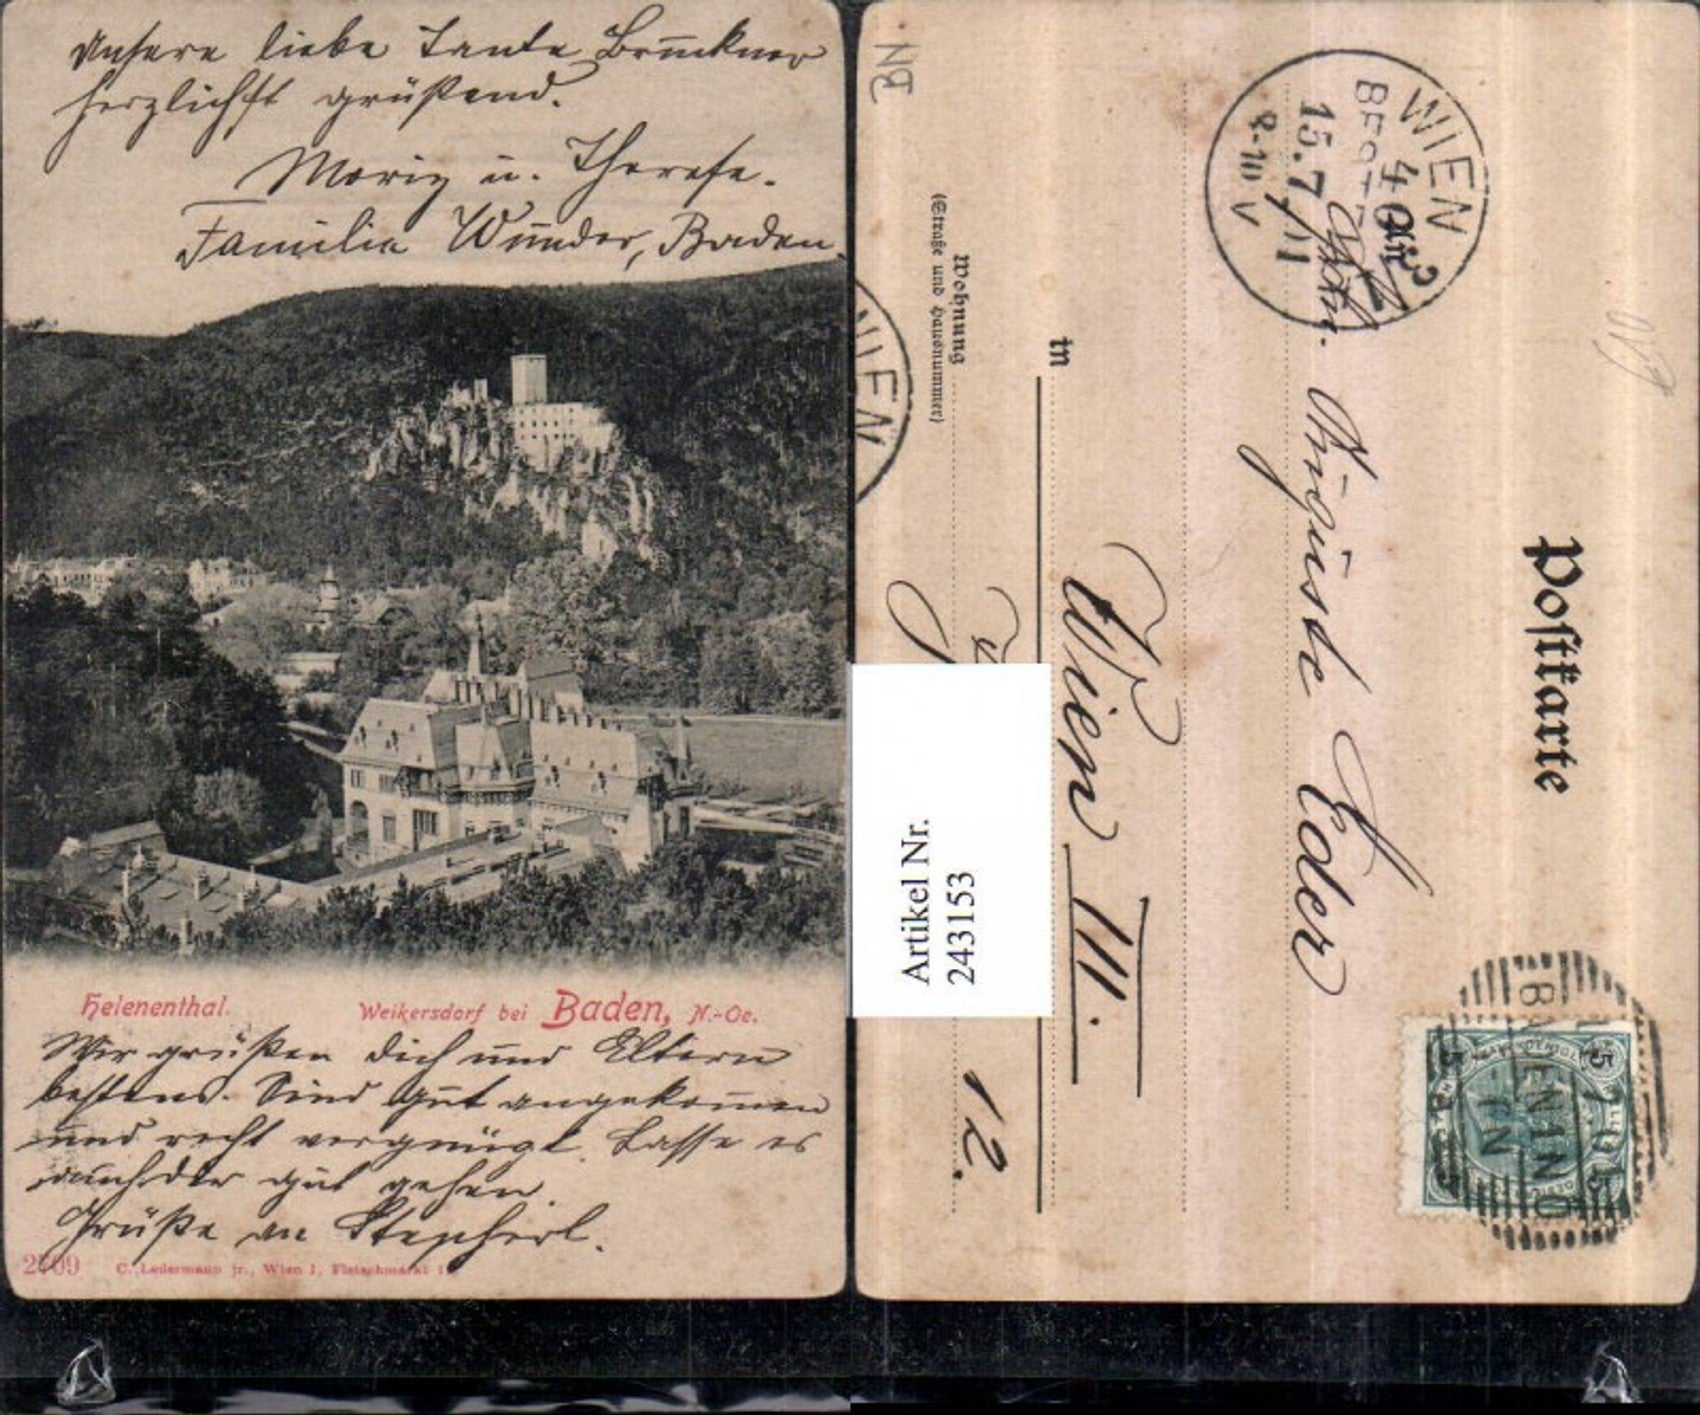 Unsere liebe Tante Bruckner
herzlichst grüßend.
Moriz u. Therese.
Familie Wunder, Baden.
Helenenthal.
Weikersdorf bei Baden, N.-Oe.
Wir grüßen Dich und Eltern
bestens. Sind gut angekommen
und recht vergnügt. Lasse es
auch dir gut gehen.
Grüße an Stepherl.
2709
C. Ledermann jr., Wien I, Fleischmarkt
Postkarte
WIEN
15.7
8-
V
Auguste Eder
in
Wien III.
Wohnung
(Straße und Hausnummer)
12.
WIEN
BN
5
5
Artikel Nr.
2431153